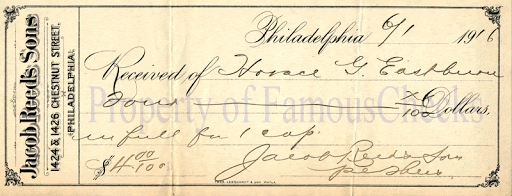 Jacob Reed's Sons
1424 & 1426 CHESTNUT STREET,
PHILADELPHIA.
Philadelphia 6/1 1916
Received of Horace G. Eastburn
Four xx/100 Dollars.
in full for 1 cap.
$4.00/100 Jacob Reed's Sons
Property of FamousChecks